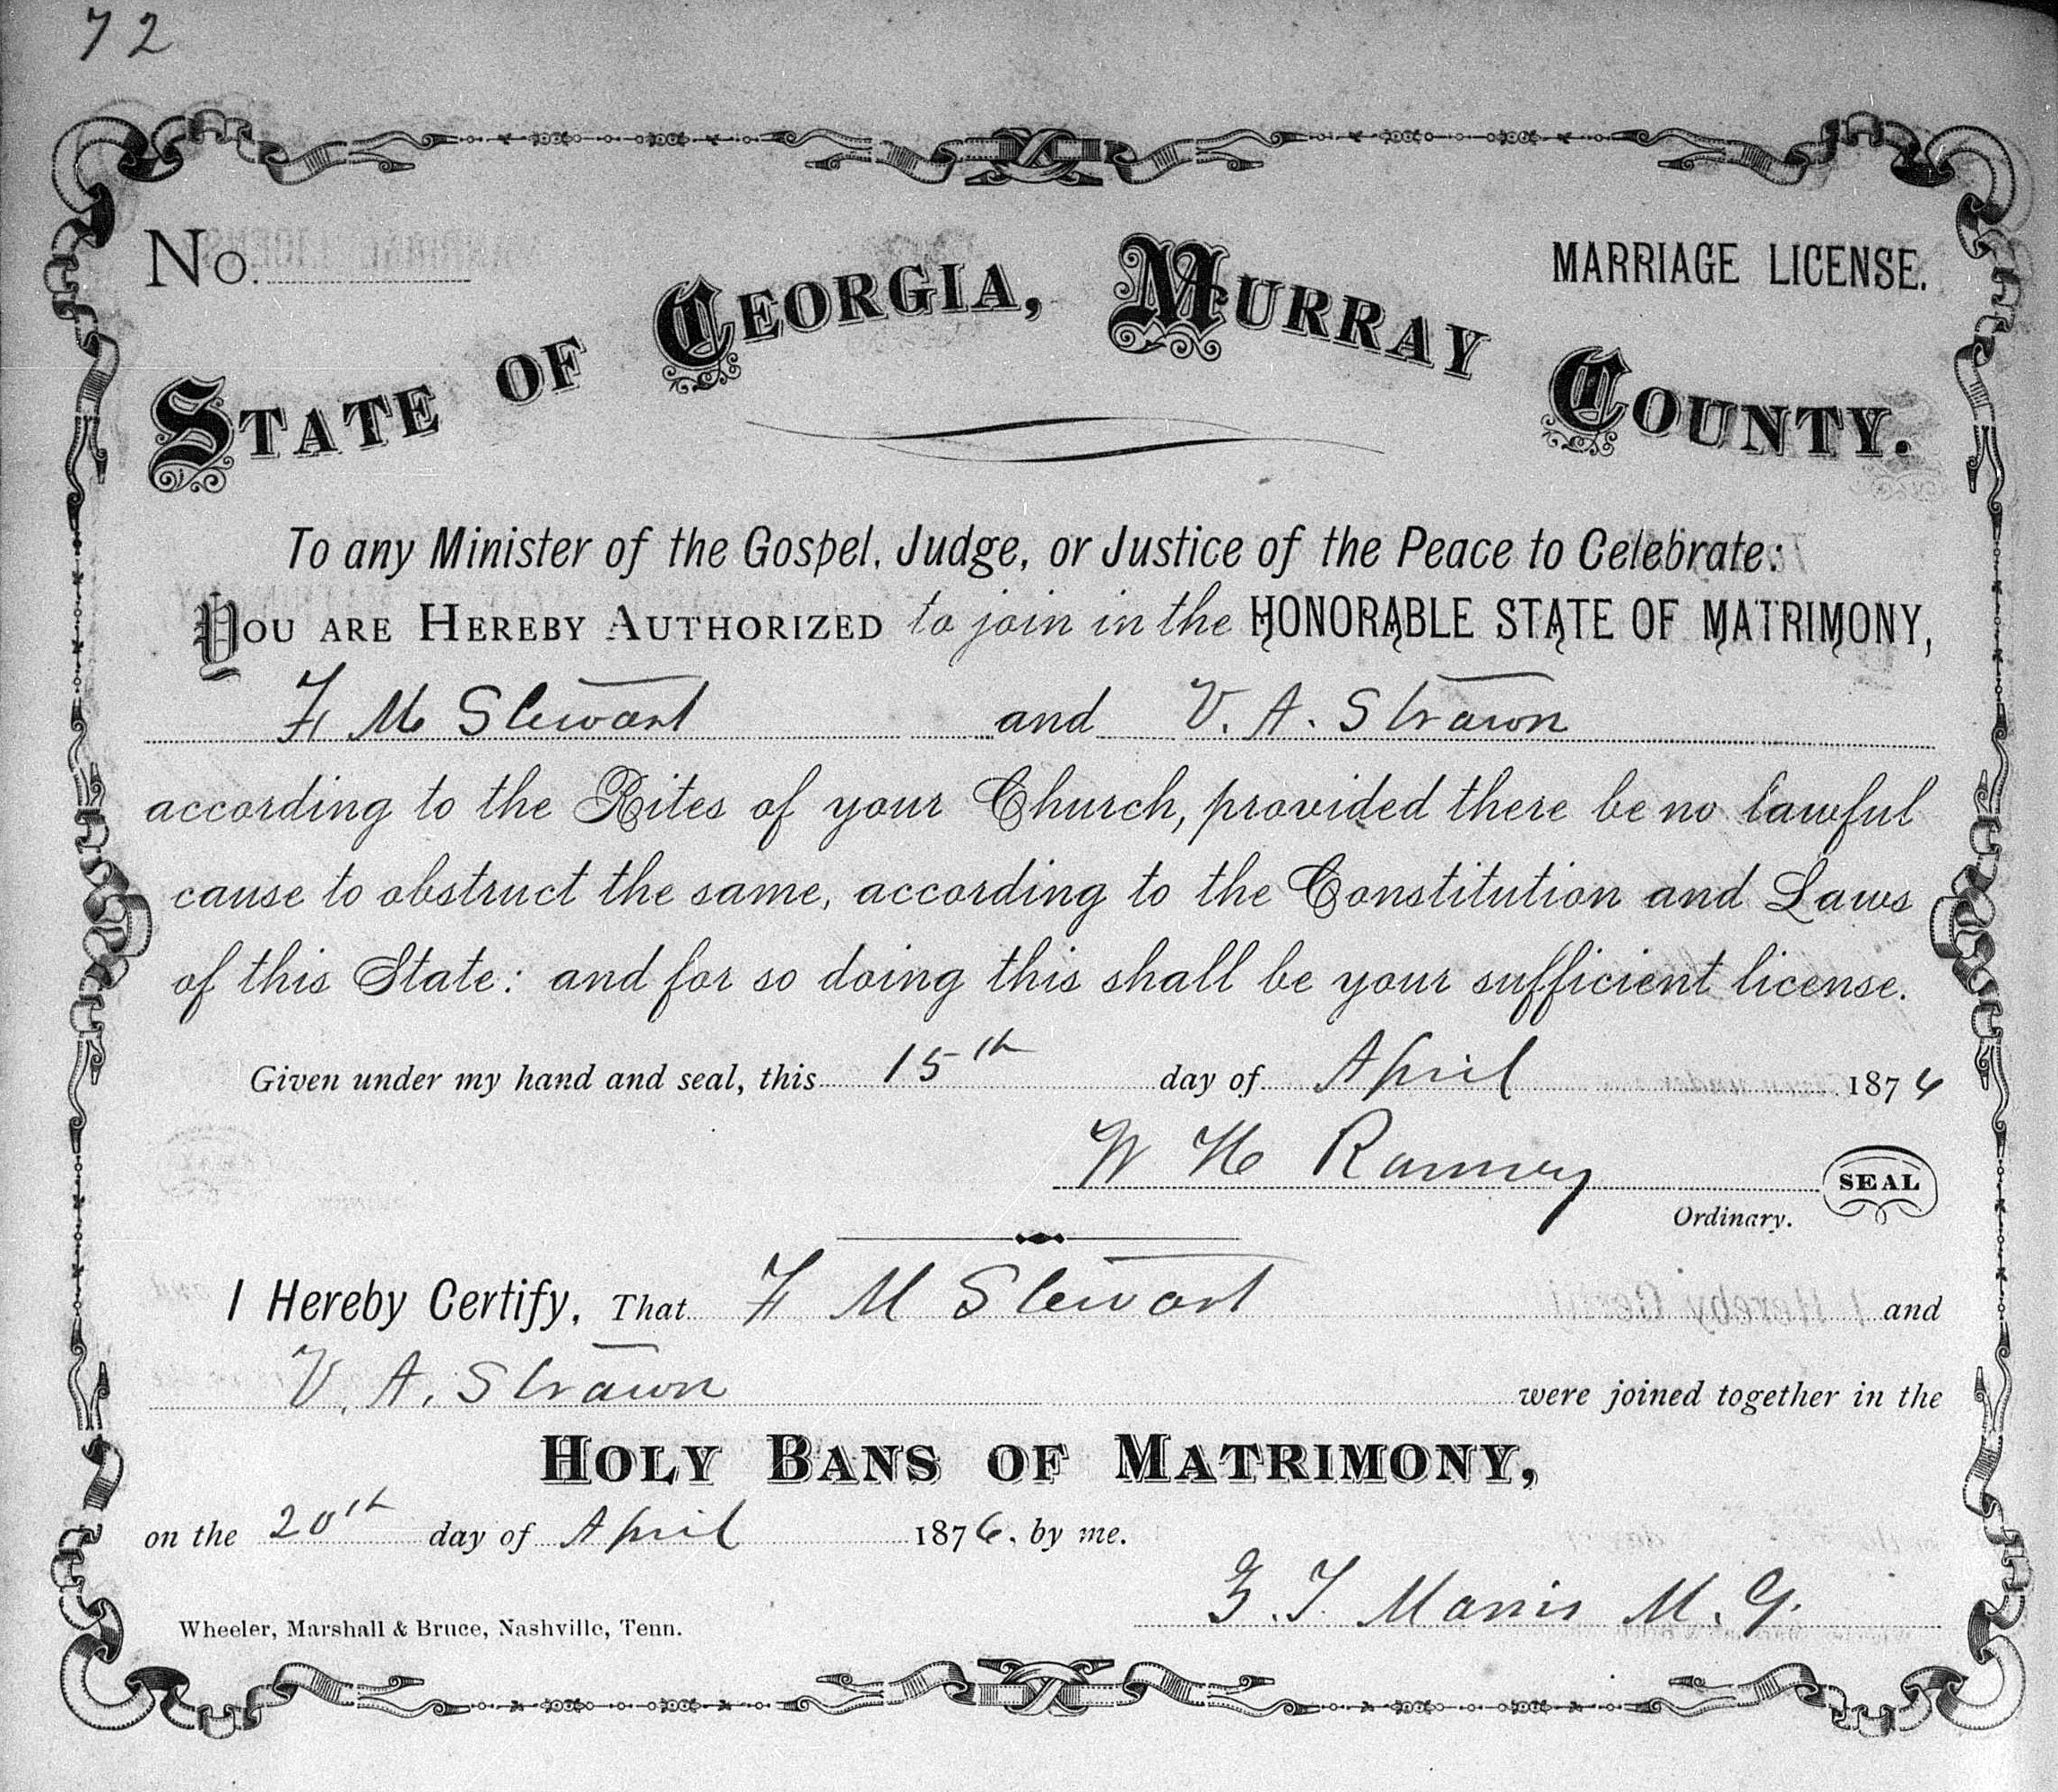 72
No.
MARRIAGE LICENSE.
STATE OF GEORGIA, MURRAY COUNTY.
To any Minister of the Gospel, Judge, or Justice of the Peace to Celebrate:
YOU ARE HEREBY AUTHORIZED to join in the HONORABLE STATE OF MATRIMONY,
F M Stewart and V. A. Strawn
according to the Rites of your Church, provided there be no lawful
cause to obstruct the same, according to the Constitution and Laws
of this State: and for so doing this shall be your sufficient license.
Given under my hand and seal, this 15th day of April 1876
W H Ramsey
SEAL
Ordinary.
I Hereby Certify, That F M Stewart and
V. A. Strawn were joined together in the
HOLY BANS OF MATRIMONY,
on the 20th day of April 1876, by me.
T. Morris M. G.
Wheeler, Marshall & Bruce, Nashville, Tenn.